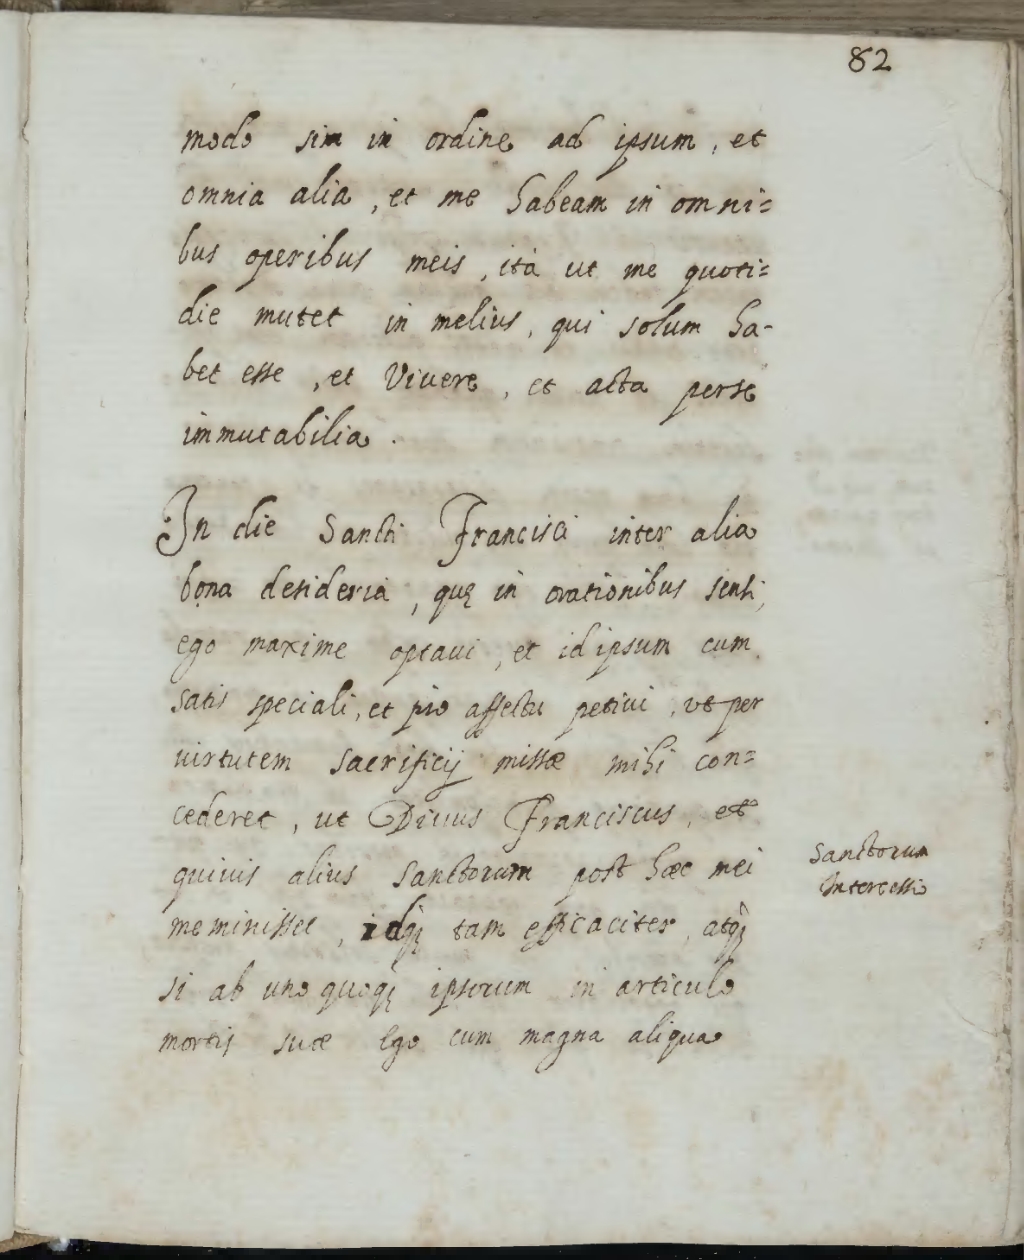 82
modo sim in ordine ad ipsum, et
omnia alia, et me habeam in omni=
bus operibus meis, ità ut me quoti=
die mutet in melius, qui solum ha-
bet esse, et Viuere, et acta per se
immutabilia.
In die Sancti Francisci inter alia
bona desideria, quę in orationibus sensi,
ego maxime optaui, et id ipsum cum
satis speciali, et pio affectu petiui, ut per
uirtutem sacrificij missæ mihi con=
cederet, ut Diuus Franciscus, et
quiuis alius Sanctorum post hæc mei
meminisset, idq; tam efficaciter, atq;
si ab uno quoq; ipsorum in articulo
mortis suæ Ego cum magna aliqua
Sanctorum
Intercessio